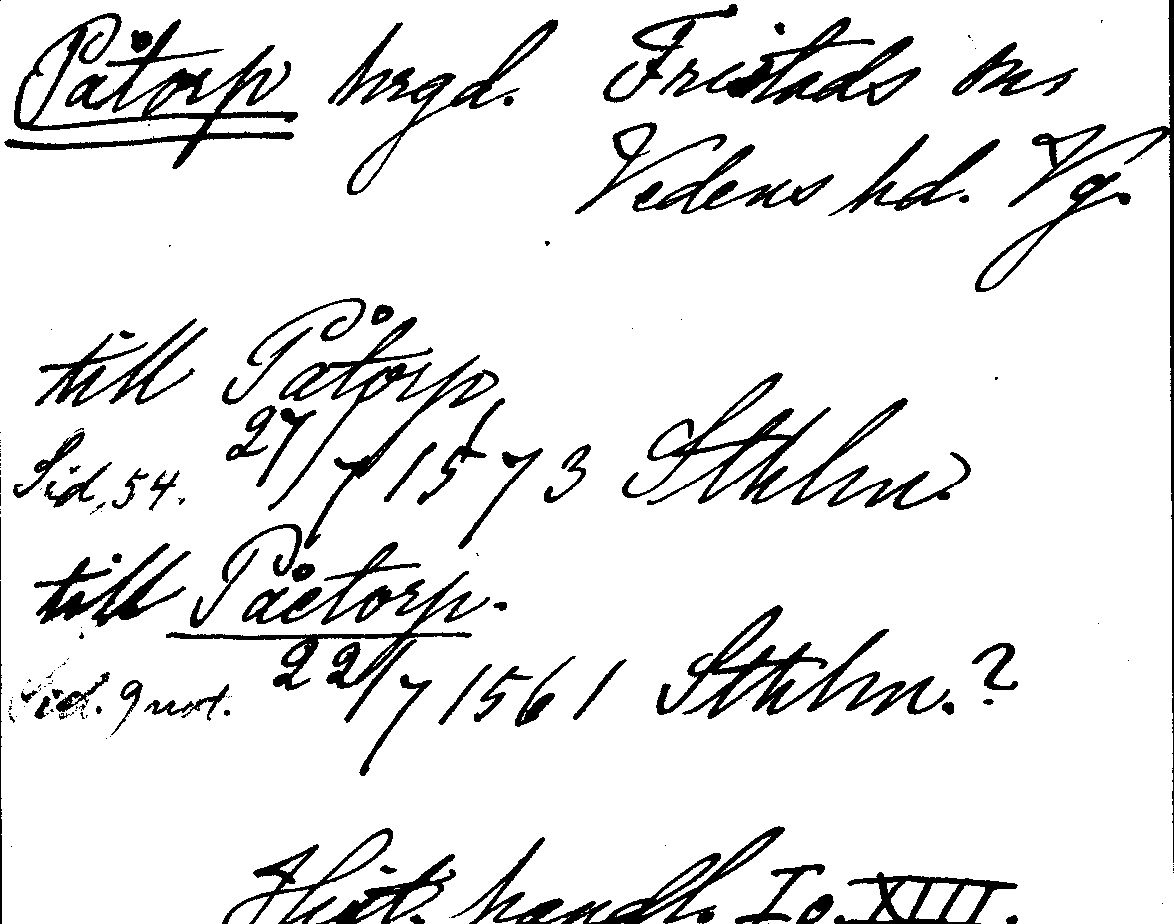 Påtorp hrgd. Fristads sn
Vedens hd. Vg.
till Påtorp
Sid. 54. 27/7 1573 Sthlm.
till Påetorp.
Sid. 9 not. 22/7 1561 Sthlm.?
Hist. handl. I o. XIII.